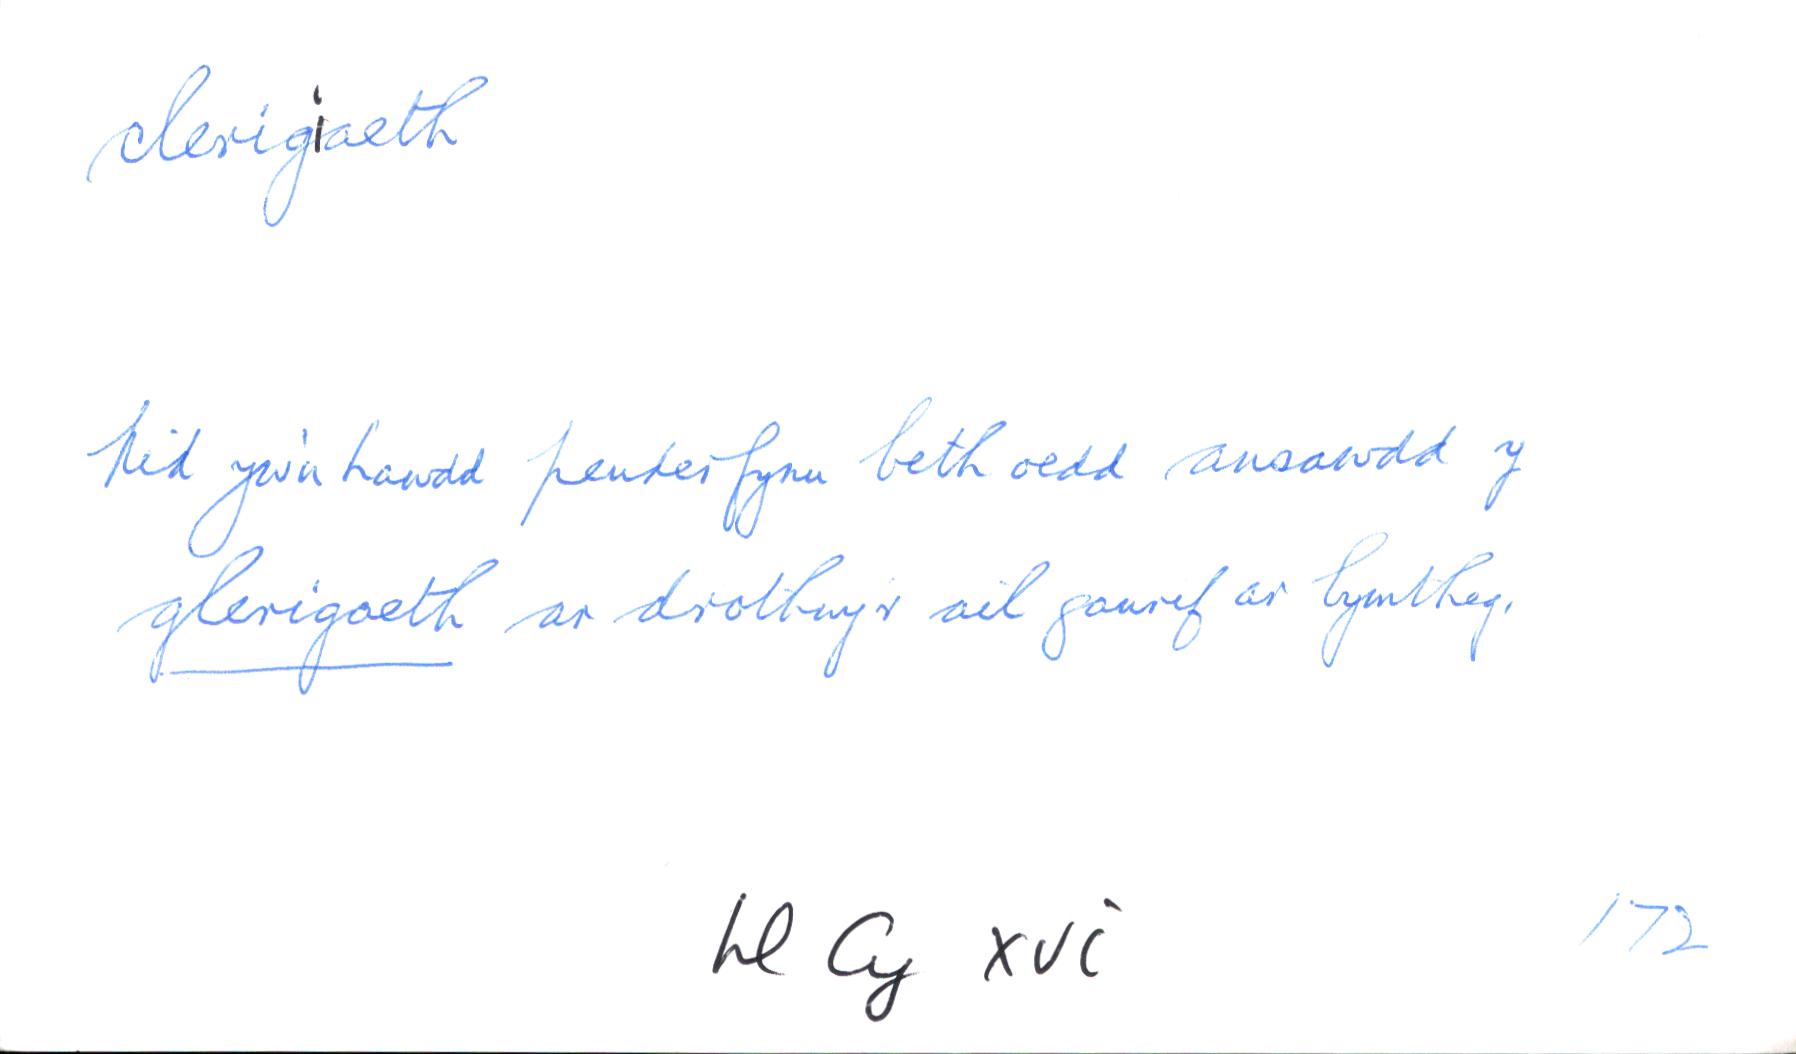 clerigiaeth
Nid yw'n hawdd penderfynu beth oedd ansawdd y
glerigaeth ar drothwy'r ail ganrif ar bymtheg.
hl Cy xvi
172